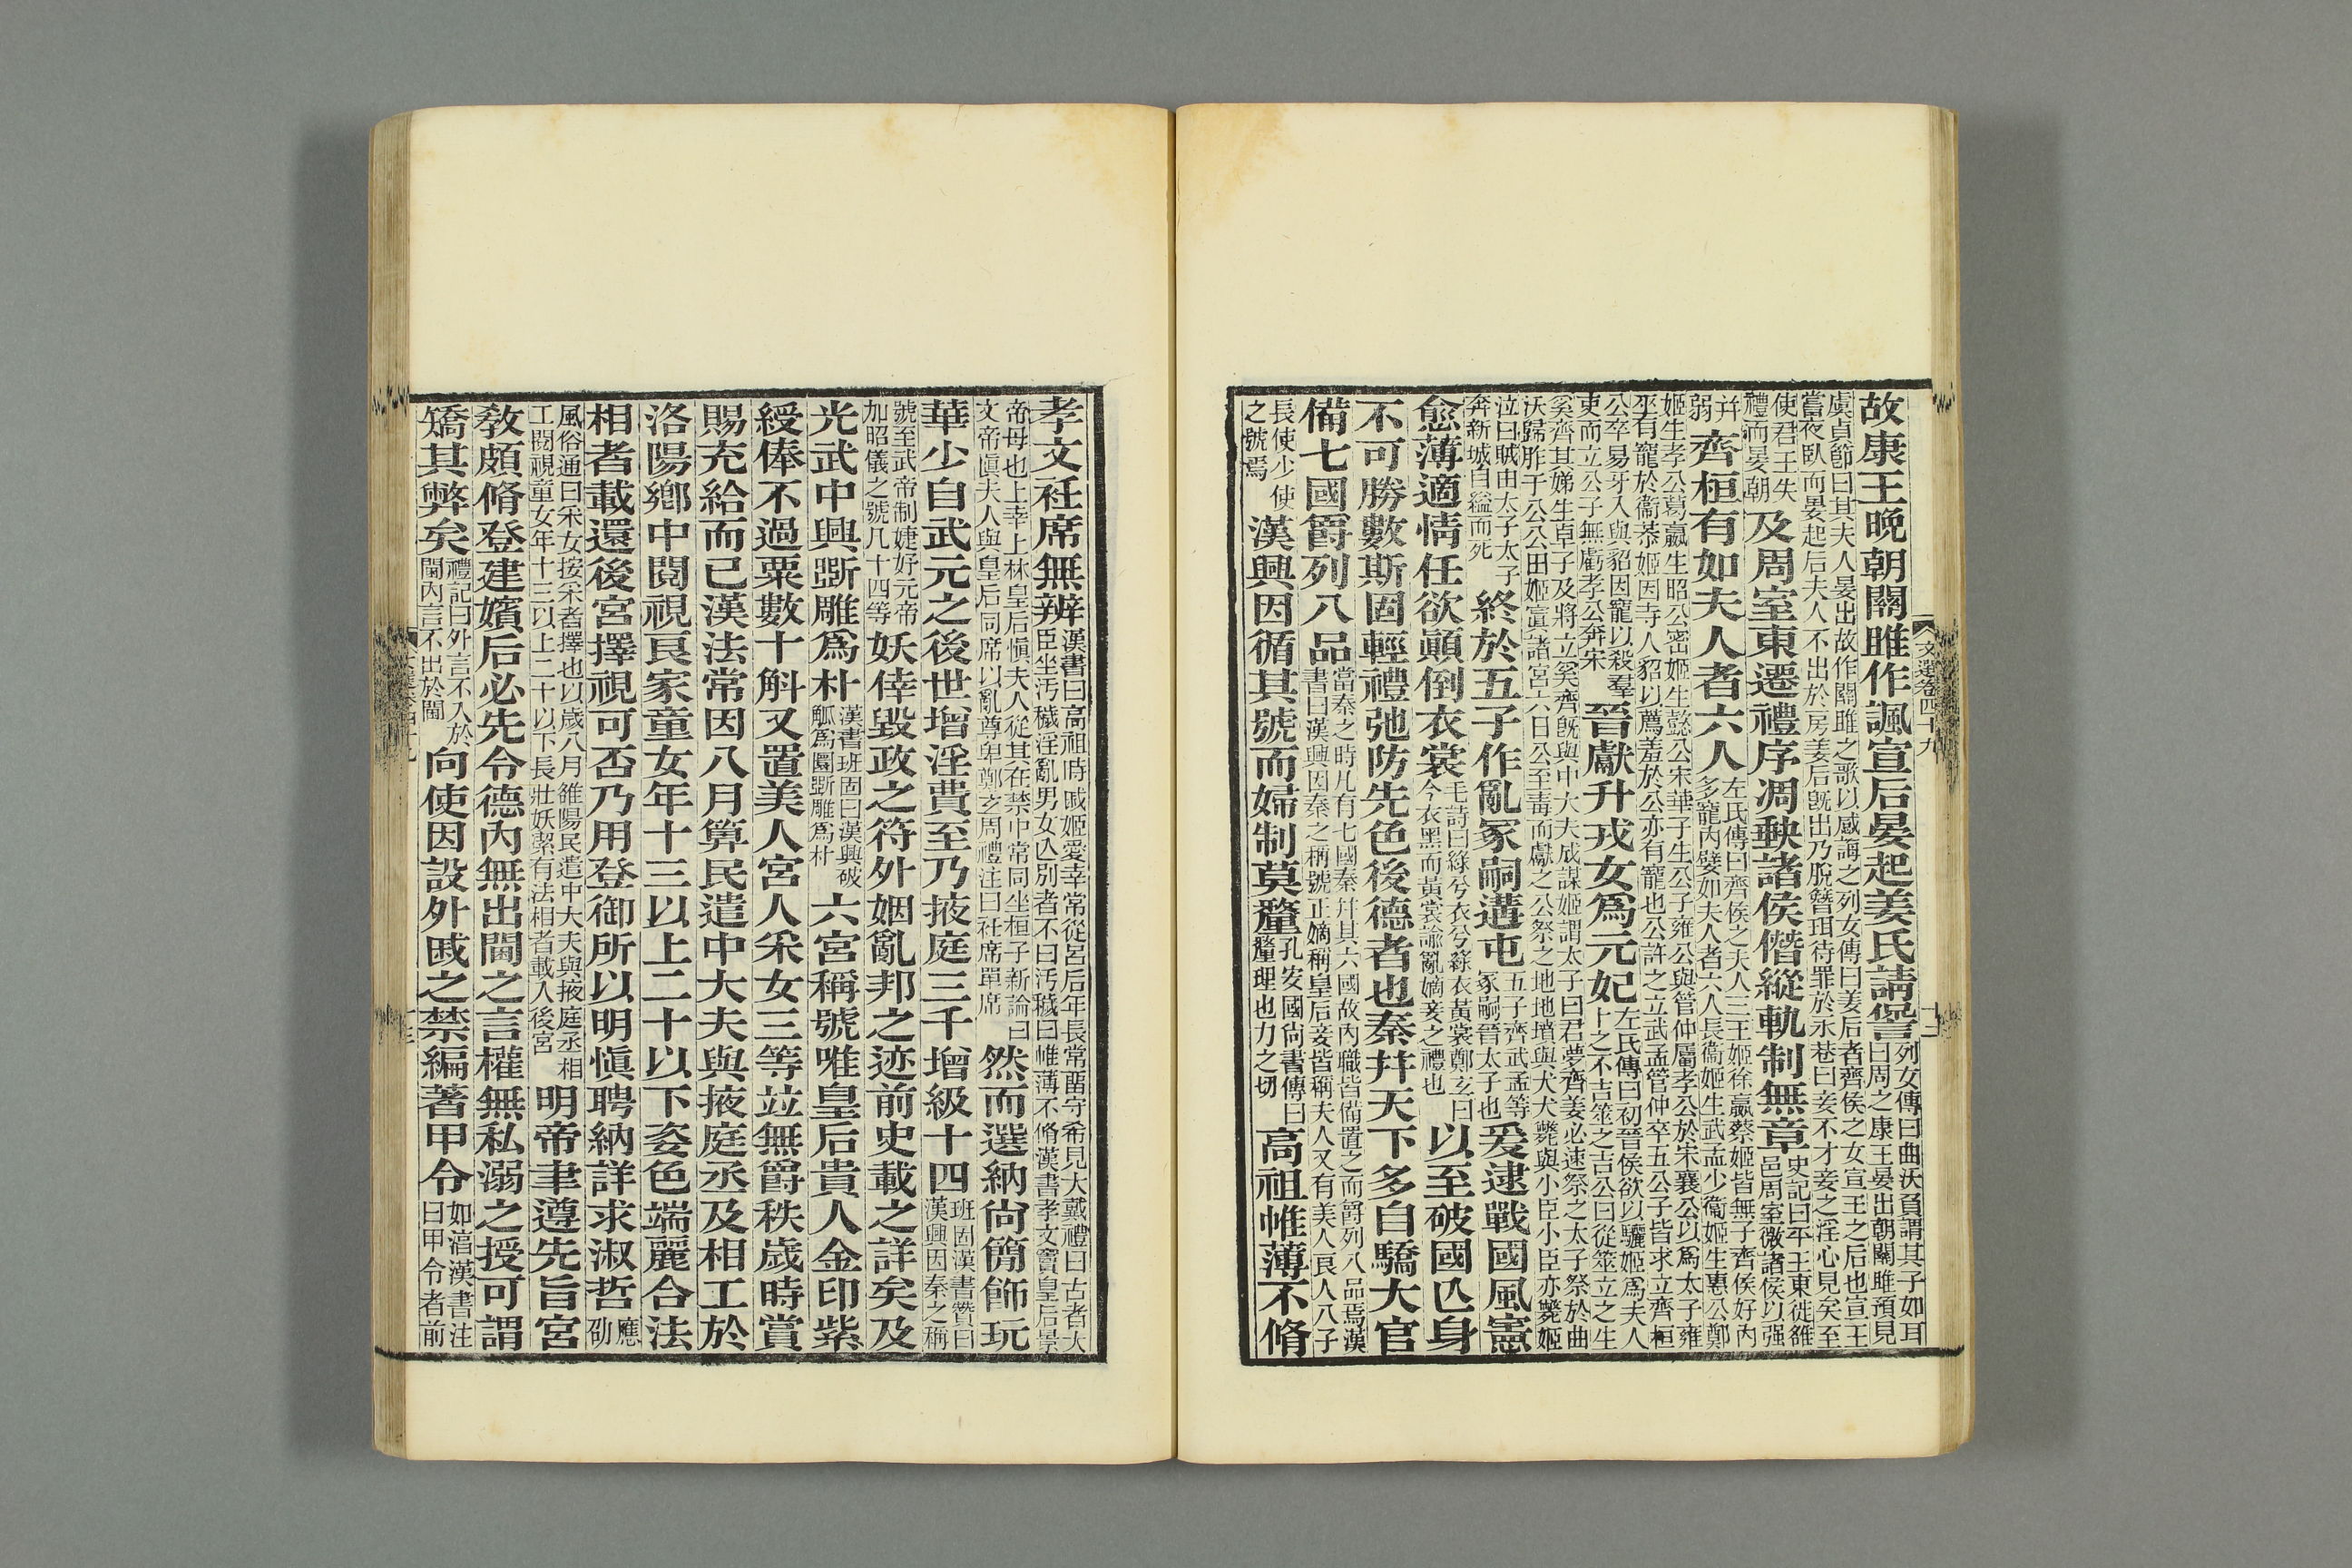 故康王晚朝關雎作諷宣后晏起姜氏請諐列女傳曰曲沃負謂其子如耳
曰周之康王晏出朝關雎預見
虞貞節曰其夫人晏出故作關雎之歌以感誨之列女傳曰姜后者齊侯之女宣王之后也宣王
嘗夜臥而晏起后夫人不出於房姜后旣出乃脫簪珥待罪於永巷曰妾不才妾之淫心見矣至
使君王失
禮而晏朝及周室東遷禮序凋軼諸侯僭縱軌制無章史記曰平王東徙雒
邑周室微諸侯以强
幷
弱齊桓有如夫人者六人左氏傳曰齊侯之夫人三王姬徐嬴蔡姬皆無子齊侯好內
多寵內嬖如夫人者六人長衞姬生武孟少衞姬生惠公鄭
姬生孝公葛嬴生昭公密姬生懿公宋華子生公子雍公與管仲屬孝公於宋襄公以爲太子雍
巫有寵於衞恭姬因寺人貂以薦羞於公亦有寵也公許之立武孟管仲卒五公子皆求立齊桓
公卒易牙入與貂因寵以殺羣
吏而立公子無虧孝公奔宋晉獻升戎女爲元妃左氏傳曰初晉侯欲以驪姬爲夫人
卜之不吉筮之吉公曰從筮立之生
奚齊其娣生卓子及將立奚齊旣與中大夫成謀姬謂太子曰君夢齊姜必速祭之太子祭於曲
沃歸胙于公公田姬寘諸宮六日公至毒而獻之公祭之地地墳與犬犬斃與小臣小臣亦斃姬
泣曰賊由太子太子
奔新城自縊而死終於五子作亂冢嗣遘屯五子齊武孟等
冢嗣晉太子也爰逮戰國風憲
愈薄適情任欲顚倒衣裳毛詩曰綠兮衣兮綠衣黃裳鄭玄曰
今衣黑而黃裳諭亂嫡妾之禮也以至破國亾身
不可勝數斯固輕禮弛防先色後德者也秦幷天下多自驕大官
備七國爵列八品當秦之時凡有七國秦幷其六國故內職皆備置之而爵列八品焉漢
書曰漢興因秦之稱號正嫡稱皇后妾皆稱夫人又有美人良人八子
長使少使
之號焉漢興因循其號而婦制莫釐孔安國尙書傳曰
釐理也力之切高祖帷薄不脩
文選卷四十九
十二
孝文衽席無辨漢書曰高祖時戚姬愛幸常從呂后年長常畱守希見大戴禮曰古者大
臣坐汚穢淫亂男女亾別者不曰汚穢曰帷薄不脩漢書孝文竇皇后景
帝母也上幸上林皇后愼夫人從其在禁中常同坐桓子新論曰
文帝愼夫人與皇后同席以亂尊卑鄭玄周禮注曰衽席單席然而選納尙簡飾玩
華少自武元之後世增淫費至乃掖庭三千增級十四班固漢書贊曰
漢興因秦之稱
號至武帝制婕妤元帝
加昭儀之號凡十四等妖倖毀政之符外姻亂邦之迹前史載之詳矣及
光武中興斲雕爲朴漢書班固曰漢興破
觚爲圜斲雕爲朴六宮稱號唯皇后貴人金印紫
綬俸不過粟數十斛又置美人宮人采女三等竝無爵秩歲時賞
賜充給而已漢法常因八月算民遣中大夫與掖庭丞及相工於
洛陽鄉中閱視良家童女年十三以上二十以下姿色端麗合法
相者載還後宮擇視可否乃用登御所以明愼聘納詳求淑哲應
劭
風俗通曰采女按采者擇也以歲八月雒陽民遣中大夫與掖庭丞相
工閱視童女年十三以上二十以下長壯妖絜有法相者載入後宮明帝聿遵先旨宮
敎頗脩登建嬪后必先令德內無出閫之言權無私溺之授可謂
矯其弊矣禮記曰外言不入於
閫內言不出於閫向使因設外戚之禁編著甲令如淳漢書注
曰甲令者前